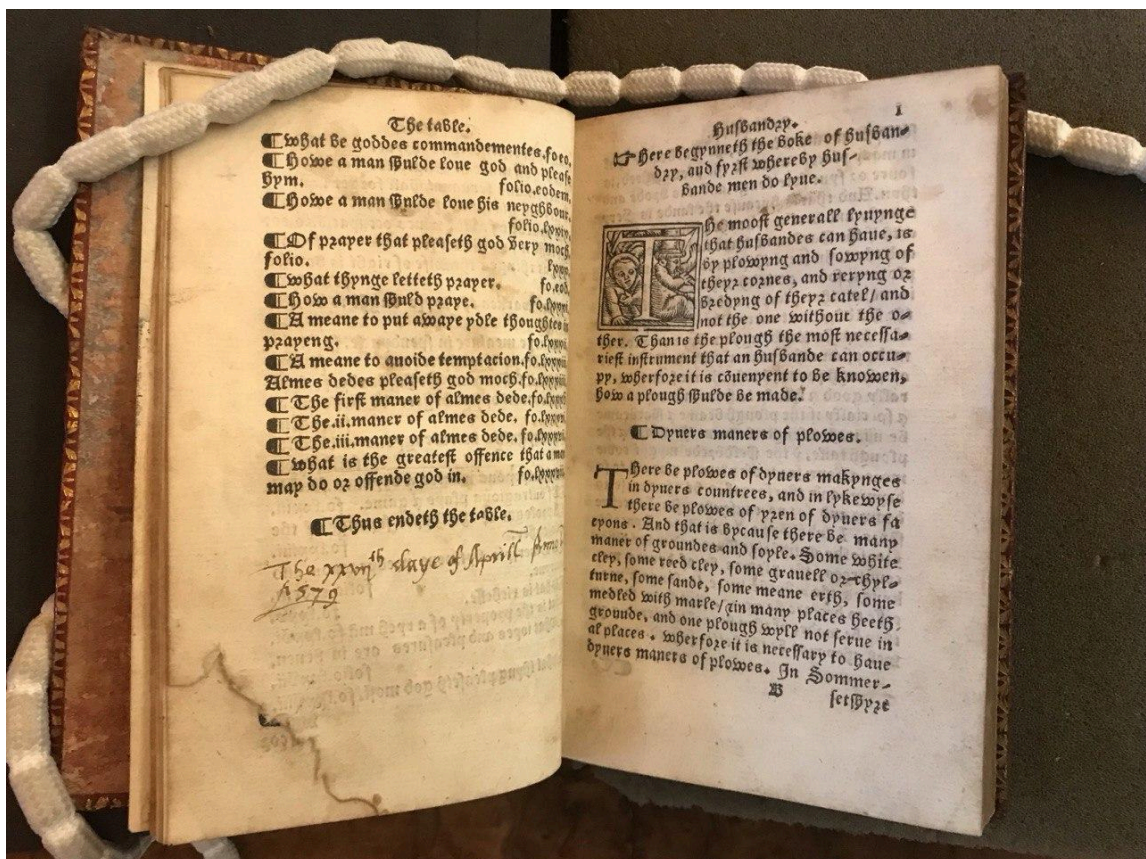 The table.
¶What be goddes commandementes.fo.eo.
¶Howe a man shulde loue god and please
hym. folio.eodem.
¶Howe a man shulde loue his neyghbour.
folio.lxxiv.
¶Of prayer that pleaseth god very moch.
folio. lxxv.
¶What thynge letteth prayer. fo.eod.
¶How a man shuld praye. fo.lxxvi.
¶A meane to put awaye ydle thoughtes in
prayeng. fo.lxxvi.
¶A meane to auoide temptacion.fo.
Almes dedes pleaseth god moch.fo.
¶The first maner of almes dede.fo.
¶The.ii.maner of almes dede. fo.
¶The.iii.maner of almes dede. fo.
¶What is the greatest offence that a man
may do or offende god in. fo.
¶Thus endeth the table.
The xxvijth daye of Aprill Anno
1579
Husbandry. 1
☞Here begynneth the boke of husban-
dry, aud fyrst whereby hus-
bande men do lyue.
The moost generall lyuynge
that husbandes can haue, is
by plowyng and sowyng of
theyr cornes, and reryng or
bredyng of theyr catel/ and
not the one without the o-
ther. Than is the plough the most necessa-
riest instrument that an husbande can occu-
py, wherfore it is cōuenyent to be knowen,
how a plough shulde be made.
¶Dyuers maners of plowes.
There be plowes of dyuers makynges
in dyuers countrees, and in lykewyse
there be plowes of yren of dyuers fa
cyons. And that is bycause there be many
maner of groundes and soyle. Some white
cley, some reed cley, some grauell or chyl-
turne, some sande, some meane erth, some
medled with marle/ in many places heeth
grounde, and one plough wyll not serue in
al places. wherfore it is necessary to haue
dyuers maners of plowes. In Sommer-
B setshyre